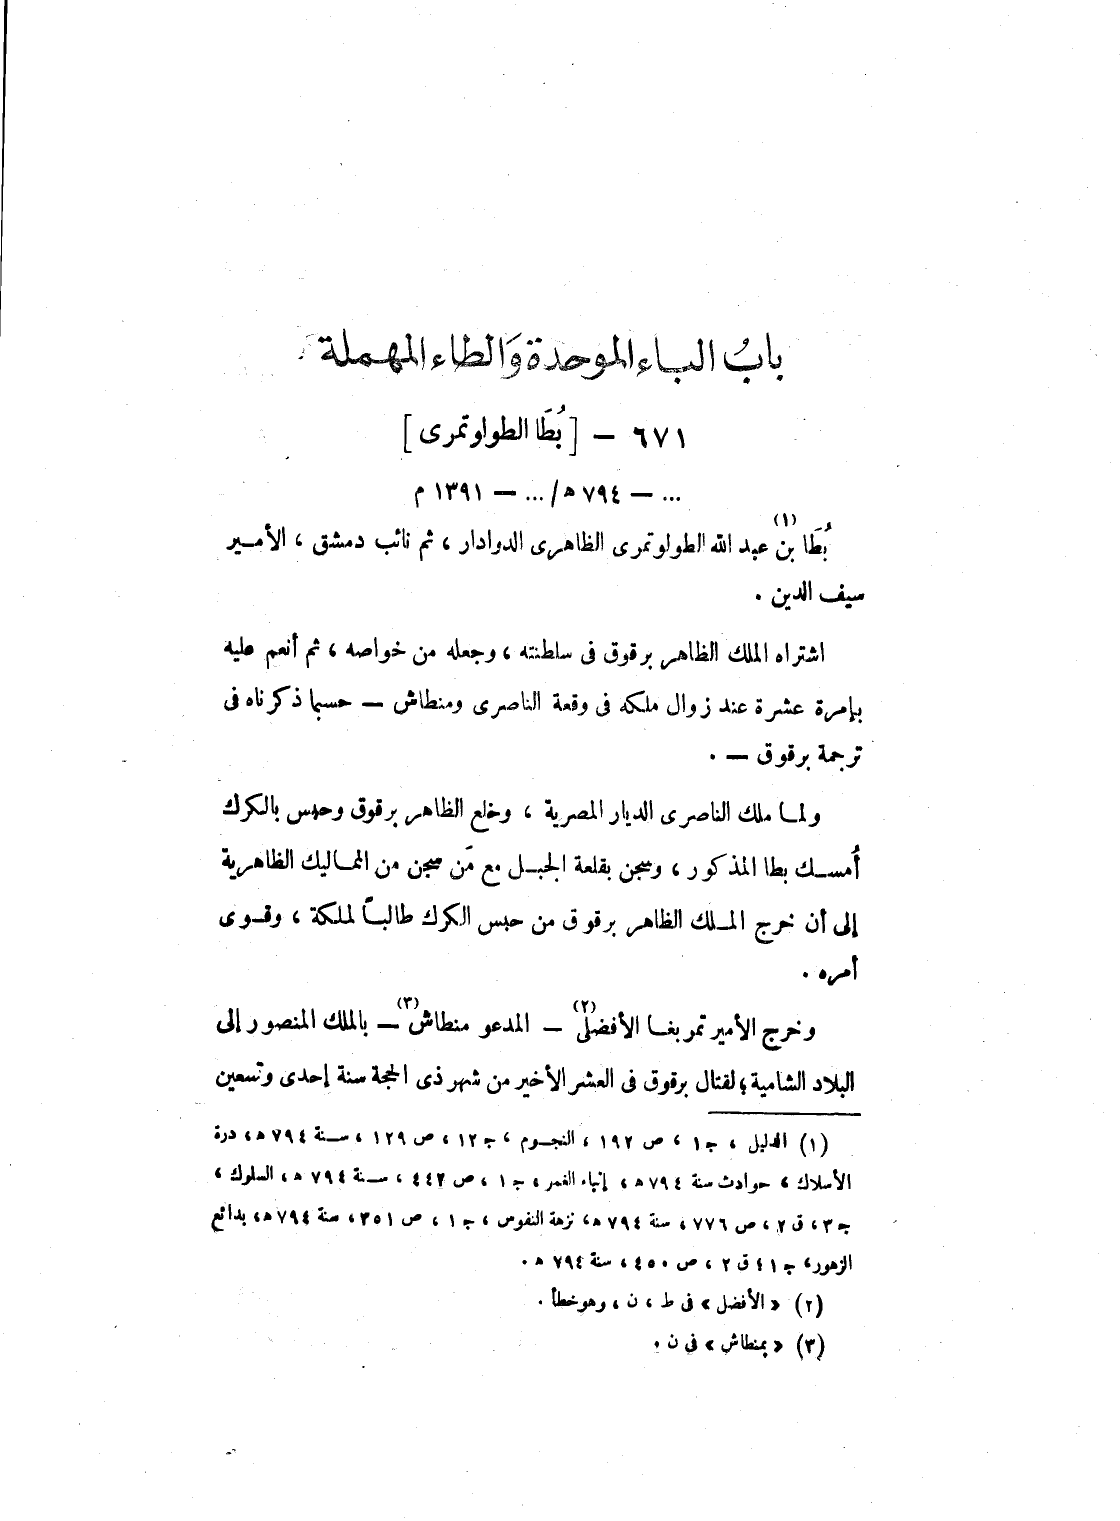 بابُ الباء الموحدة وَالطاء المهملة
٦٧١ — [بُطَا الطولوتمرى]
... — ٧٩٤ ه/ ... — ١٣٩١ م
بُطَا بن (١) عبد الله الطولوتمرى الظاهرى الدوادار ، ثم نائب دمشق ، الأمير
سيف الدين .
اشتراه الملك الظاهر برقوق فى سلطنته ، وجعله من خواصه ، ثم أنعم عليه
بإمرة عشرة عند زوال ملكه فى وقعة الناصرى ومنطاش — حسبما ذكرناه فى
ترجمة برقوق — .
ولما ملك الناصرى الديار المصرية ، وخلع الظاهر برقوق وحبس بالكرك
أُمسك بطا المذكور ، وسجن بقلعة الجبل مع مَن سجن من المماليك الظاهرية
إلى أن خرج الملك الظاهر برقوق من حبس الكرك طالباً لملكة ، وقوى
أمره .
وخرج الأمير تمربغا الأفضلى (٢) — المدعو منطاش (٣) — بالملك المنصور إلى
البلاد الشامية ؛ لقتال برقوق فى العشر الأخير من شهر ذى الحجة سنة إحدى وتسعين
(١) الدليل ، ج ١ ، ص ١٩٢ ، النجوم ، ج ١٢ ، ص ١٢٩ ، سنة ٧٩٤ ه ، درة
الأسلاك ، حوادث سنة ٧٩٤ ه ، إنباء الغمر ، ج ١ ، ص ٤٤٢ ، سنة ٧٩٤ ه ، السلوك ،
ج ٣ ، ق ٢ ، ص ٧٧٦ ، سنة ٧٩٤ ه ، نزهة النفوس ، ج ١ ، ص ٣٥١ ، سنة ٧٩٤ ه ، بدائع
الزهور ، ج ١ ، ق ٢ ، ص ٤٥٠ ، سنة ٧٩٤ ه .
(٢) « الأفضل » فى ط ، ن ، وهو خطأ .
(٣) « بمنطاش » فى ن .